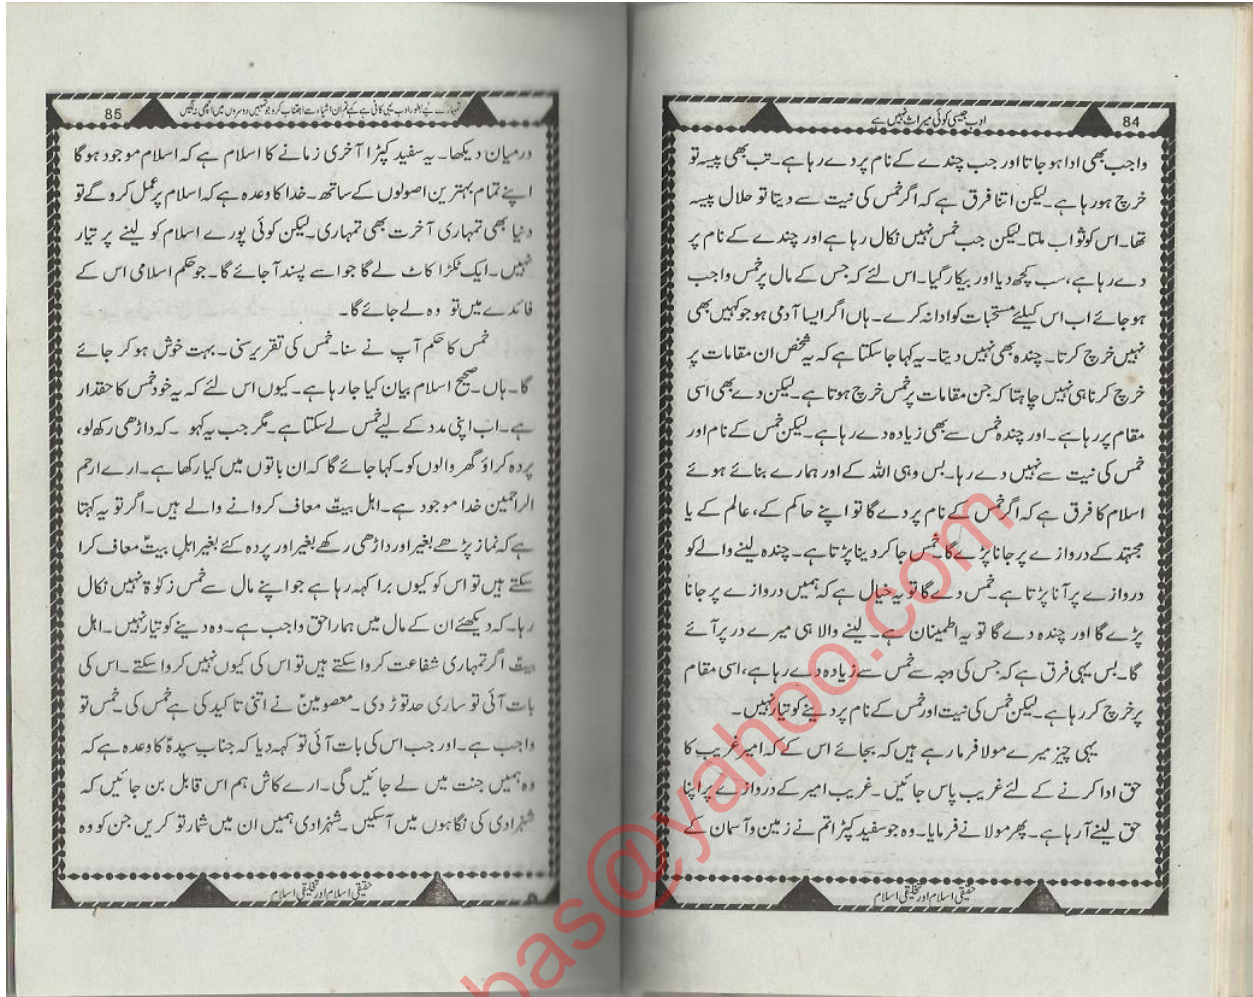 84
ادب جیسی کوئی میراث نہیں ہے
واجب بھی ادا ہو جاتا اور جب چندے کے نام پر دے رہا ہے۔ تب بھی پیسہ تو
خرچ ہو رہا ہے۔ لیکن اتنا فرق ہے کہ اگر خمس کی نیت سے دیتا تو حلال پیسہ
تھا۔ اس کو ثواب ملتا۔ لیکن جب خمس نہیں نکال رہا ہے اور چندے کے نام پر
دے رہا ہے، سب کچھ دیا اور بیکار گیا۔ اس لئے کہ جس کے مال پر خمس واجب
ہو جائے اب اس کیلئے مستحبات کو ادا نہ کرے۔ ہاں اگر ایسا آدمی ہو جو کہیں بھی
نہیں خرچ کرتا۔ چندہ بھی نہیں دیتا۔ یہ کہا جا سکتا ہے کہ یہ شخص ان مقامات پر
خرچ کرنا ہی نہیں چاہتا کہ جن مقامات پر خمس خرچ ہوتا ہے۔ لیکن دے بھی اسی
مقام پر رہا ہے۔ اور چندہ خمس سے بھی زیادہ دے رہا ہے۔ لیکن خمس کے نام اور
خمس کی نیت سے نہیں دے رہا۔ بس وہی اللہ کے اور ہمارے بنائے ہوئے
اسلام کا فرق ہے کہ اگر خمس کے نام پر دے گا تو اپنے حاکم کے، عالم کے یا
مجتہد کے دروازے پر جانا پڑے گا۔ خمس جا کر دینا پڑتا ہے۔ چندہ لینے والے کو
دروازے پر آنا پڑتا ہے۔ خمس دے گا تو یہ خیال ہے کہ ہمیں دروازے پر جانا
پڑے گا اور چندہ دے گا تو یہ اطمینان ہے۔ لینے والا ہی میرے در پر آئے
گا۔ بس یہی فرق ہے کہ جس کی وجہ سے خمس سے زیادہ دے رہا ہے، اسی مقام
پر خرچ کر رہا ہے۔ لیکن خمس کی نیت اور خمس کے نام پر دینے کو تیار نہیں۔
یہی چیز میرے مولا فرما رہے ہیں کہ بجائے اس کے کہ امیر غریب کا
حق ادا کرنے کے لئے غریب پاس جائیں۔ غریب امیر کے دروازے پر اپنا
حق لینے آ رہا ہے۔ پھر مولا نے فرمایا۔ وہ جو سفید کپڑا تم نے زمین و آسمان کے
حقیقی اسلام اور تخلیقی اسلام
85
تمہارے لیے بطور ادب یہی کافی ہے کہ تم ان اشیاء سے اجتناب کرو جو تمہیں دوسروں میں اچھی نہ لگیں
درمیان دیکھا۔ یہ سفید کپڑا آخری زمانے کا اسلام ہے کہ اسلام موجود ہوگا
اپنے تمام بہترین اصولوں کے ساتھ۔ خدا کا وعدہ ہے کہ اسلام پر عمل کرو گے تو
دنیا بھی تمہاری آخرت بھی تمہاری۔ لیکن کوئی پورے اسلام کو لینے پر تیار
نہیں۔ ایک ٹکڑا کاٹ لے گا جو اسے پسند آ جائے گا۔ جو حکم اسلامی اس کے
فائدے میں تو وہ لے جائے گا۔
خمس کا حکم آپ نے سنا۔ خمس کی تقریر سنی۔ بہت خوش ہو کر جائے
گا۔ ہاں۔ صحیح اسلام بیان کیا جا رہا ہے۔ کیوں اس لئے کہ یہ خود خمس کا حقدار
ہے۔ اب اپنی مدد کے لیے خمس لے سکتا ہے۔ مگر جب یہ کہو ۔ کہ داڑھی رکھ لو،
پردہ کراؤ گھر والوں کو۔ کہا جائے گا کہ ان باتوں میں کیا رکھا ہے۔ ارے ارحم
الراحمین خدا موجود ہے۔ اہل بیتؑ معاف کروانے والے ہیں۔ اگر تو یہ کہتا
ہے کہ نماز پڑھے بغیر اور داڑھی رکھے بغیر اور پردہ کئے بغیر اہل بیتؑ معاف کرا
سکتے ہیں تو اس کو کیوں برا کہہ رہا ہے جو اپنے مال سے خمس زکوٰۃ نہیں نکال
رہا۔ کہ دیکھئے ان کے مال میں ہمارا حق واجب ہے۔ وہ دینے کو تیار نہیں۔ اہل
بیتؑ اگر تمہاری شفاعت کروا سکتے ہیں تو اس کی کیوں نہیں کروا سکتے۔ اس کی
بات آئی تو ساری حد توڑ دی۔ معصومینؑ نے اتنی تاکید کی ہے خمس کی۔ خمس تو
واجب ہے۔ اور جب اس کی بات آئی تو کہہ دیا کہ جناب سیدہؑ کا وعدہ ہے کہ
وہ ہمیں جنت میں لے جائیں گی۔ ارے کاش ہم اس قابل بن جائیں کہ
شہزادی کی نگاہوں میں آ سکیں۔ شہزادی ہمیں ان میں شمار تو کریں جن کو وہ
حقیقی اسلام اور تخلیقی اسلام
bas@yahoo.com